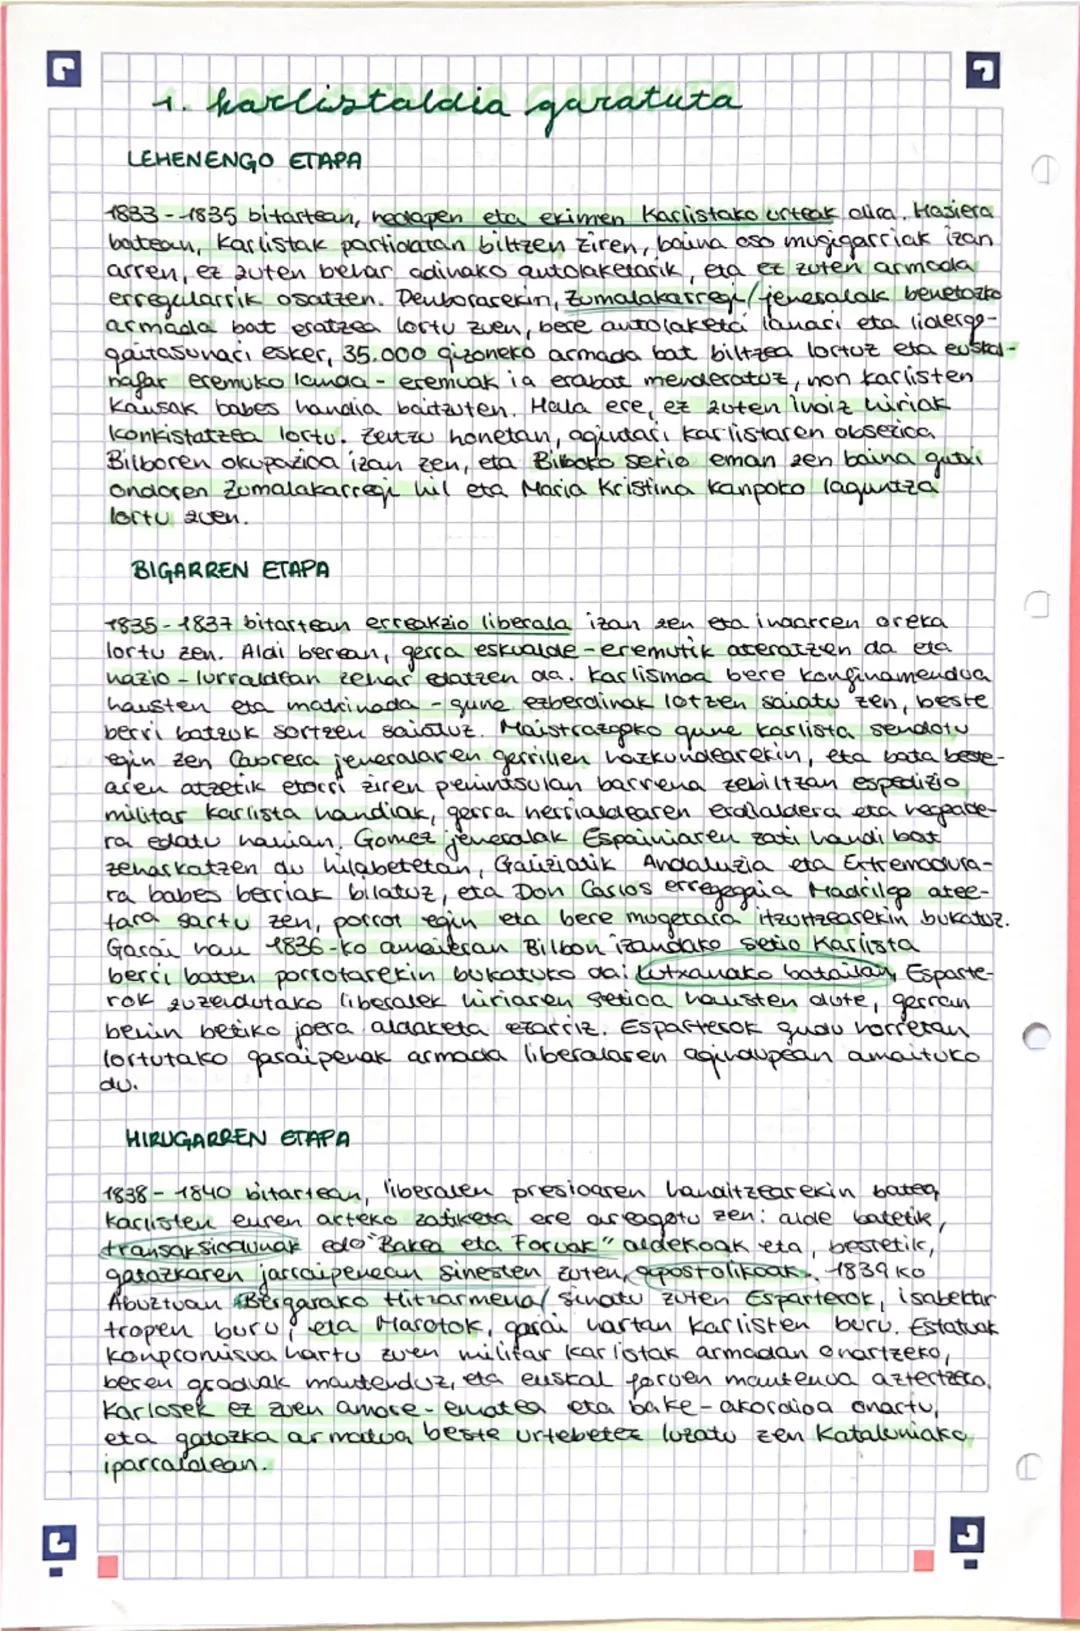 1. karlistaldia garatuta
LEHENENGO ETAPA
1833-1835 bitartean, hedapen eta ekimen Karlistako urteak dira. Hasiera
batean, Karlistak partidatan biltzen ziren, baina oso mugigarriak izan
arren, ez zuten behar adinako autolaketarik, eta ez zuten armada
erregularrik osatzen. Denborarekin, Zumalakarregi jeneralak benetazko
armada bat eratzea lortu zuen, bere autolaketa lanari eta liderga-
gaitasunari esker, 35.000 gizoneko armada bat biltzea lortuz eta euskal-
nafar eremuko landa-eremuak ia erabat menderatuz, non karlisten
Kausak babes handia baitzuten. Hala ere, ez zuten inoiz hiriak
konkistatzea lortu. Zeutzu honetan, agintari karlistaren obsezioa
Bilboren okupazioa izan zen, eta Bilboko setio eman zen baina gutxi
ondoren Zumalakarregi hil eta Maria Kristina kanpoko laguntza
lortu zuen.
BIGARREN ETAPA
1835-1837 bitartean erreakzio liberala izan zen eta indarren oreka
lortu zen. Aldi berean, gerra eskualde-eremutik ateratzen da eta
nazio-lurraldean zehar edatzen da. Karlismoa bere konfinamendua
hausten eta matxinada-gune ezberdinak lotzen saiatu zen, beste
berri batzuk sortzen saiatuz. Maistrazgoko gune karlista sendotu
egin zen Cabrera jeneralaren gerrillen hazkundearekin, eta bata beste-
aren atzetik etorri ziren penintsulan barrena zebiltzan espedizio
militar karlista handiak, gerra herrialdearen erdialdera eta hegoalde-
ra edatu nahian. Gomez jeneralak Espainiaren zati handi bat
zeharkatzen du hilabetetan, Galiziatik Andaluzia eta Extremadura-
ra babes berriak bilatuz, eta Don Carlos erregegaia Madrilgo atee-
tara sartu zen, porrot egin eta bere mugetara itzultzearekin bukatuz.
Garai hau 1836-ko amaieran Bilbon izandako setio Karlista
berri baten porrotarekin bukatuko da: Lutxanako batailan, Esparte-
rok zuzendutako liberalek hiriaren setioa hausten dute, gerran
behin betiko joera aldaketa ezarriz. Esparterok gudu horretan
lortutako garaipenak armada liberalaren agindupean amaituko
du.
HIRUGARREN ETAPA
1838-1840 bitartean, liberalen presioaren handitzearekin batea,
karlisten euren arteko zatiketa ere areagotu zen: alde batetik,
transakzionunak edo "Bakea eta Foruak" aldekoak eta, bestetik,
gatazkaren jarraipenean sinesten zuten, apostolikoak. 1839ko
Abuztuan Bergarako Hitzarmena sinatu zuten Esparterok, isabeltar
tropen buru, eta Marotok, garai hartan karlisten buru. Estatuak
konpromisua hartu zuen militar karlistak armadan onartzeko,
beren graduak mantenduz, eta euskal foruen mantenua aztertzeko.
Karlosek ez zuen amore-ematea eta bake-akordioa onartu,
eta gatazka armatua beste urtebetez luzatu zen Kataluniako
iparraldean.